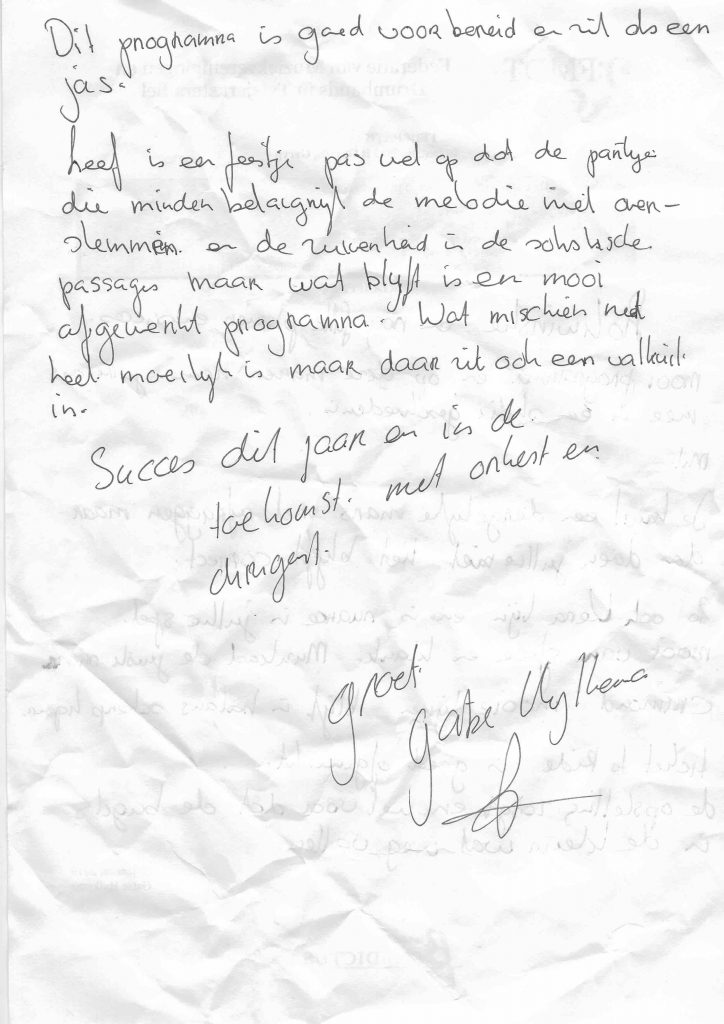 Dit programma is goed voorbereid en zit als een
jas.
heef is een feestje pas wel op dat de partije
die minder belangrijk de melodie niet over-
stemmen. en de zuiverheid in de solistische
passages maar wat blijft is en mooi
afgewerkt programma. Wat mischien niet
heel moeilijk is maar daar zit och een valkuil
in.
Succes dit jaar en in de
toekomst. met orkest en
dirigent.
groet.